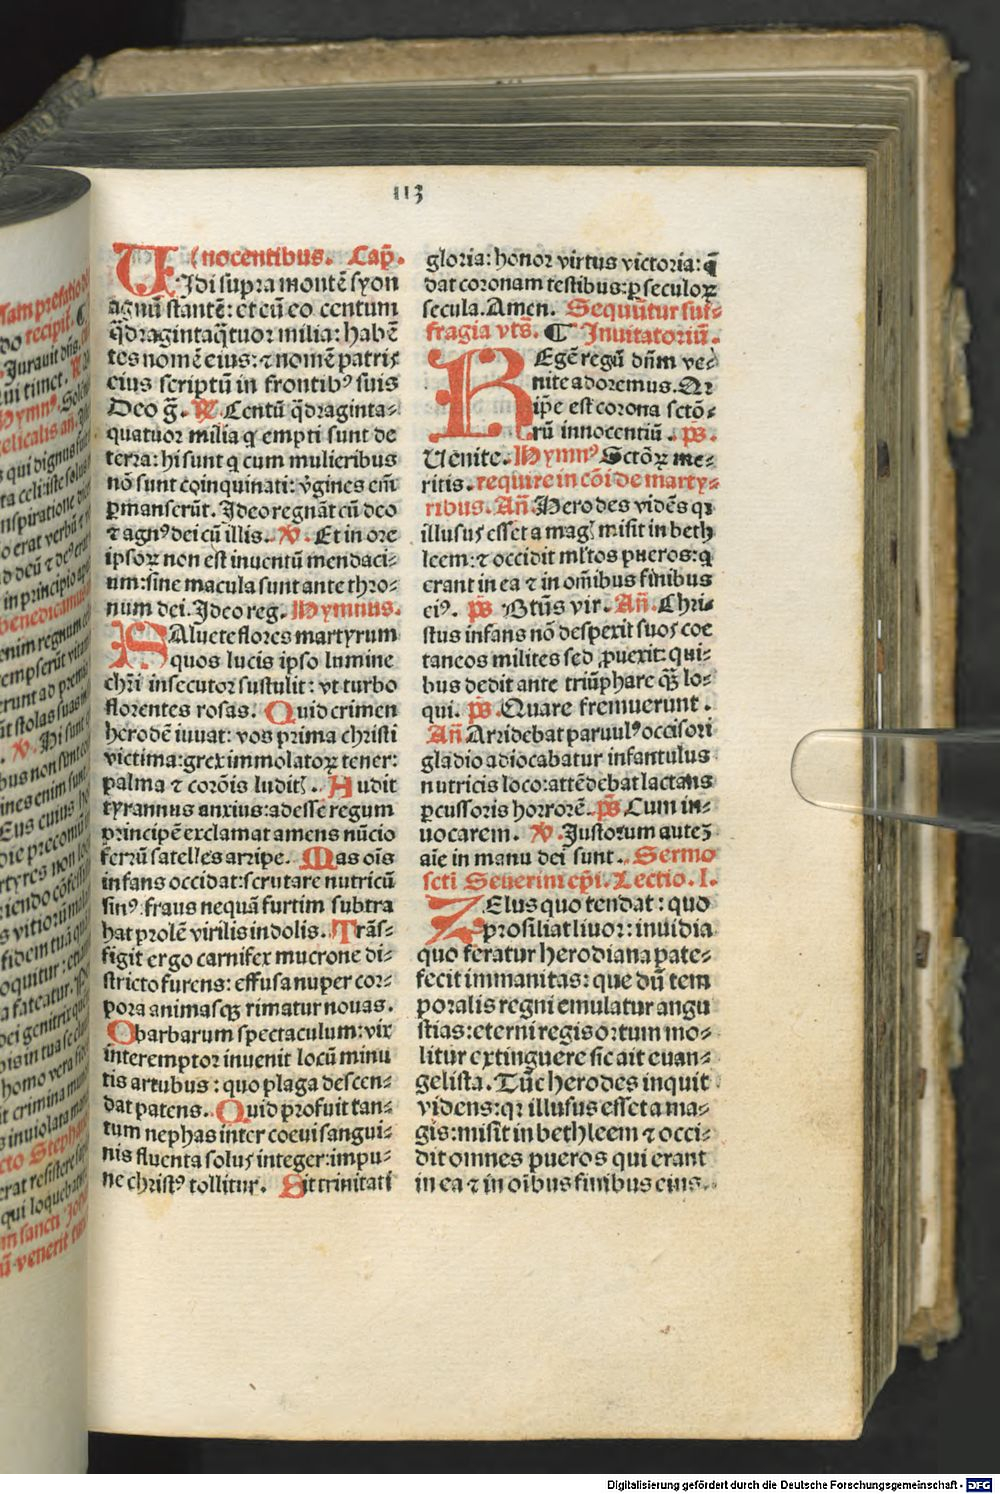 113
Innocentibus. Cap̄.
Uidi supra montē syon
agnū stantē: et cū eo centum
q̄dragintaq̄tuor milia: habē
tes nomē eius: ⁊ nomē patris
eius scriptū in frontibꝰ suis
Deo g̅. ℟. Centū q̄draginta⸗
quatuor milia q̄ empti sunt de
terra: hi sunt q̄ cum mulieribus
nō sunt coinquinati: v̄gines em̄
ꝑmanserūt. Ideo regnāt cū deo
⁊ agnꝰ dei cū illis. ℣. Et in ore
ipsoꝝ non est inuentū mendaci⸗
um: sine macula sunt ante thro⸗
num dei. Ideo reg. Hymnus.
SAluete flores martyrum
quos lucis ipso lumine
chr̄i insecutor sustulit: vt turbo
florentes rosas. Quid crimen
herodē iuuat: vos prima christi
victima: grex immolatoꝝ tener:
palma ⁊ corōis luditꝭ. Audit
tyrannus anxius: adesse regum
principē exclamat amens nūcio
ferrū satelles arripe. Mas oīs
infans occidat: scrutare nutricū
sinꝰ: fraus nequā furtim subtra
hat prolē virilis indolis. Trās⸗
figit ergo carnifex mucrone di⸗
stricto furens: effusa nuper cor⸗
pora animasqꝫ rimatur nouas.
O barbarum spectaculum: vix
interemptor inuenit locū minu
tis artubus: quo plaga descen⸗
dat patens. Quid profuit tan⸗
tum nephas inter coeui sangui⸗
nis fluenta solus integer: impu⸗
ne christꝰ tollitur. Sit trinitati
gloria: honor virtus victoria: q̄
dat coronam testibus: ꝑ seculoꝝ
secula. Amen. Sequūtur suf⸗
fragia vts̄. ¶ Inuitatoriū.
REgē regū dn̄m ve⸗
nite adoremus. Qr
ip̄e est corona sctō⸗
rū innocentiū. ps̄.
Uenite. Hymnꝰ Sctōꝝ me⸗
ritis. require in cōi de marty⸗
ribus. An̄. Herodes vidēs qꝛ
illusus esset a magꝭ misit in beth
leem: ⁊ occidit ml̄tos pueros: q̄
erant in ea ⁊ in om̄ibus finibus
eiꝰ. ps̄ Btūs vir. An̄. Chri⸗
stus infans nō despexit suos coe
taneos milites sed ꝓuexit: qui⸗
bus dedit ante triūphare qꝫ̄ lo⸗
qui. ps̄. Quare fremuerunt.
An̄ Arridebat paruulꝰ occisori
gladio adiocabatur infantulus
nutricis loco: attēdebat lactans
ꝑcussoris horrorē. ps̄ Cum in⸗
uocarem. ℣. Justorum auteꝫ
aīe in manu dei sunt. Sermo
scti Seuerini ep̄i. Lectio. I.
ZElus quo tendat: quo
prosiliat liuor: inuidia
quo feratur herodiana pate⸗
fecit immanitas: que dū tem
poralis regni emulatur angu
stias: eterni regis ortum mo⸗
litur extinguere sic ait euan⸗
gelista. Tūc herodes inquit
vidēns: qꝛ illusus esset a ma⸗
gis: misit in bethleem ⁊ occi⸗
dit omnes pueros qui erant
in ea ⁊ in oībus finibus eius.
Digitalisierung gefördert durch die Deutsche Forschungsgemeinschaft - DFG